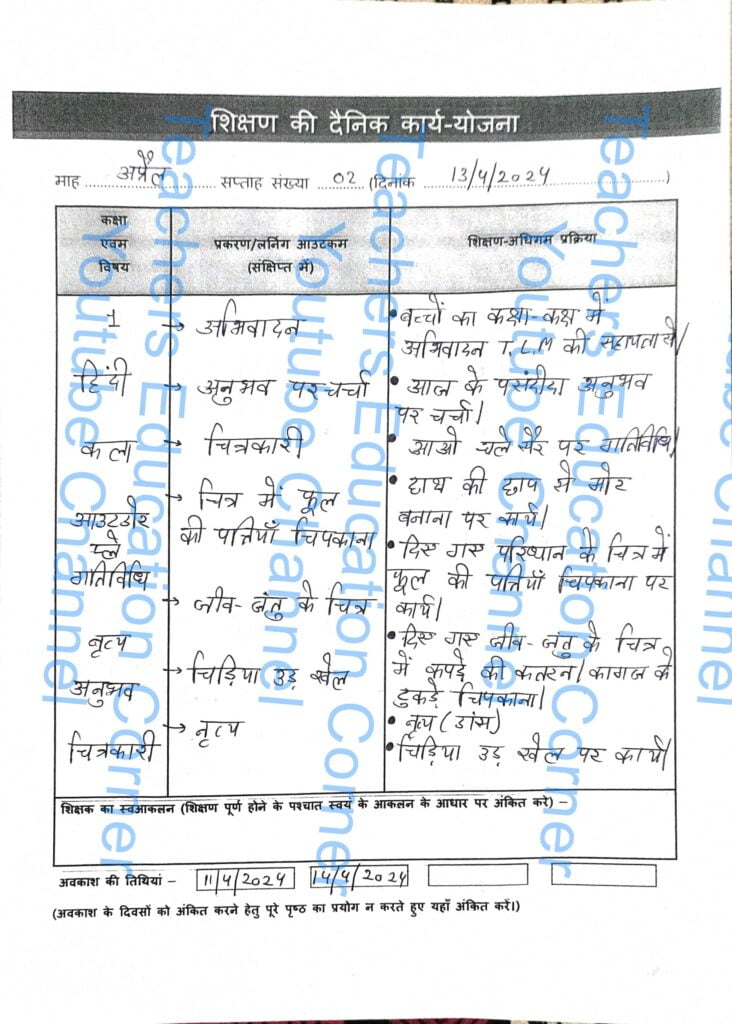 शिक्षण की दैनिक कार्य-योजना
माह अप्रैल सप्ताह संख्या 02 (दिनांक 13/4/2024)
कक्षा
एवम
विषय
प्रकरण/लर्निंग आउटकम
(संक्षिप्त में)
शिक्षण-अधिगम प्रक्रिया
1
हिंदी
कला
आउटडोर
प्ले
गतिविधि
नृत्य
अनुभव
चित्रकारी
→ अभिवादन
→ अनुभव पर चर्चा
→ चित्रकारी
→ चित्र में फूल
की पत्तियाँ चिपकाना
→ जीव-जंतु के चित्र
→ चिड़िया उड़ खेल
→ नृत्य
• बच्चों का कक्षा-कक्ष में
अभिवादन T.L.M की सहायता से।
• आज के पसंदीदा अनुभव
पर चर्चा।
• आओ चले सैर पर गतिविधि।
• हाथ की छाप से मोर
बनाना पर कार्य।
• दिए गए परिधान के चित्र में
फूल की पत्तियाँ चिपकाना पर
कार्य।
• दिए गए जीव-जंतु के चित्र
में कपड़े की कतरन। कागज के
टुकड़े चिपकाना।
• नृत्य (डांस)
• चिड़िया उड़ खेल पर कार्य।
शिक्षक का स्वआकलन (शिक्षण पूर्ण होने के पश्चात स्वयं के आकलन के आधार पर अंकित करे) –
अवकाश की तिथियां – 11/4/2024 14/4/2024
(अवकाश के दिवसों को अंकित करने हेतु पूरे पृष्ठ का प्रयोग न करते हुए यहाँ अंकित करें।)
Teachers Education Corner
Youtube Channel
Teachers Education Corner
Youtube Channel
Teachers Education Corner
Youtube Channel